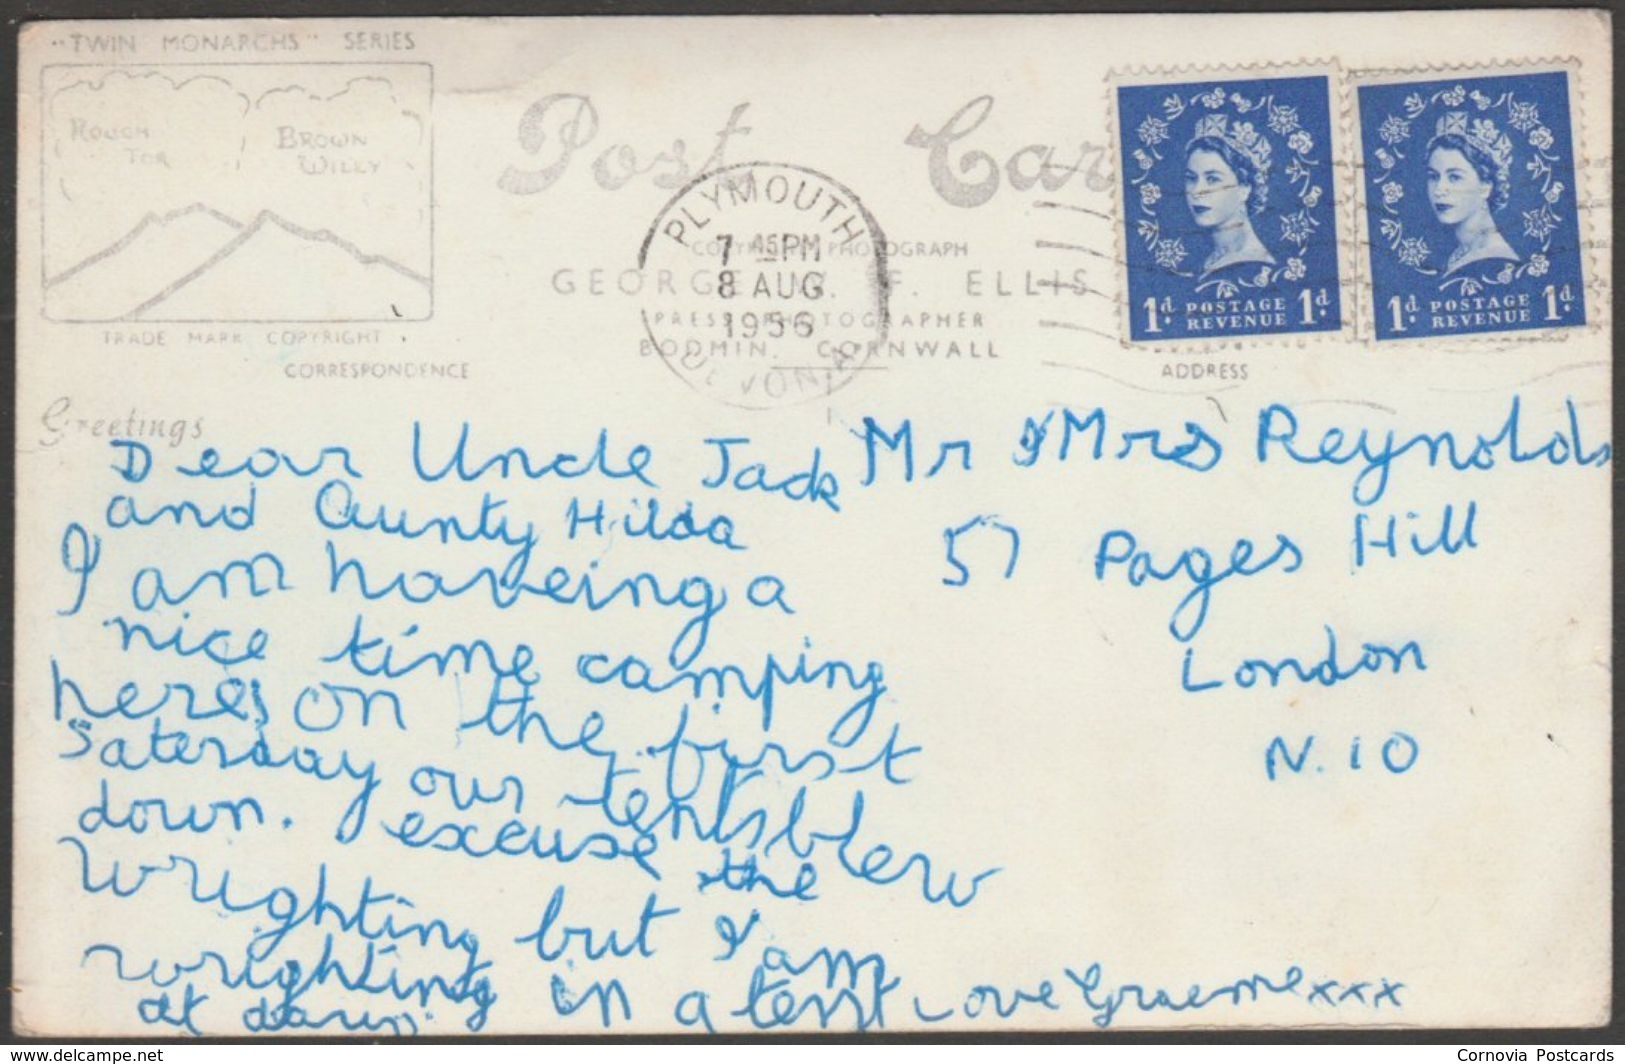 "TWIN MONARCHS" SERIES
ROUGH TOR
BROWN WILLY
TRADE MARK COPYRIGHT
CORRESPONDENCE
Post Car
COPYRIGHT PHOTOGRAPH
GEORGE W. F. ELLIS
PRESS PHOTOGRAPHER
BODMIN. CORNWALL
PLYMOUTH
7 45PM
8 AUG
1956
DEVON
1d. POSTAGE REVENUE 1d.
1d. POSTAGE REVENUE 1d.
ADDRESS
Greetings
Dear Uncle Jack
and Aunty Hilda
I am haveing a
nice time camping
here, on the first
Saterday our tents blew
down. excuse the
wrighting but I am
wrighting in a tent
at dawn.
Love Graeme xxx
Mr & Mrs Reynolds
57 Pages Hill
London
N.10
www.delcampe.net
Cornovia Postcards